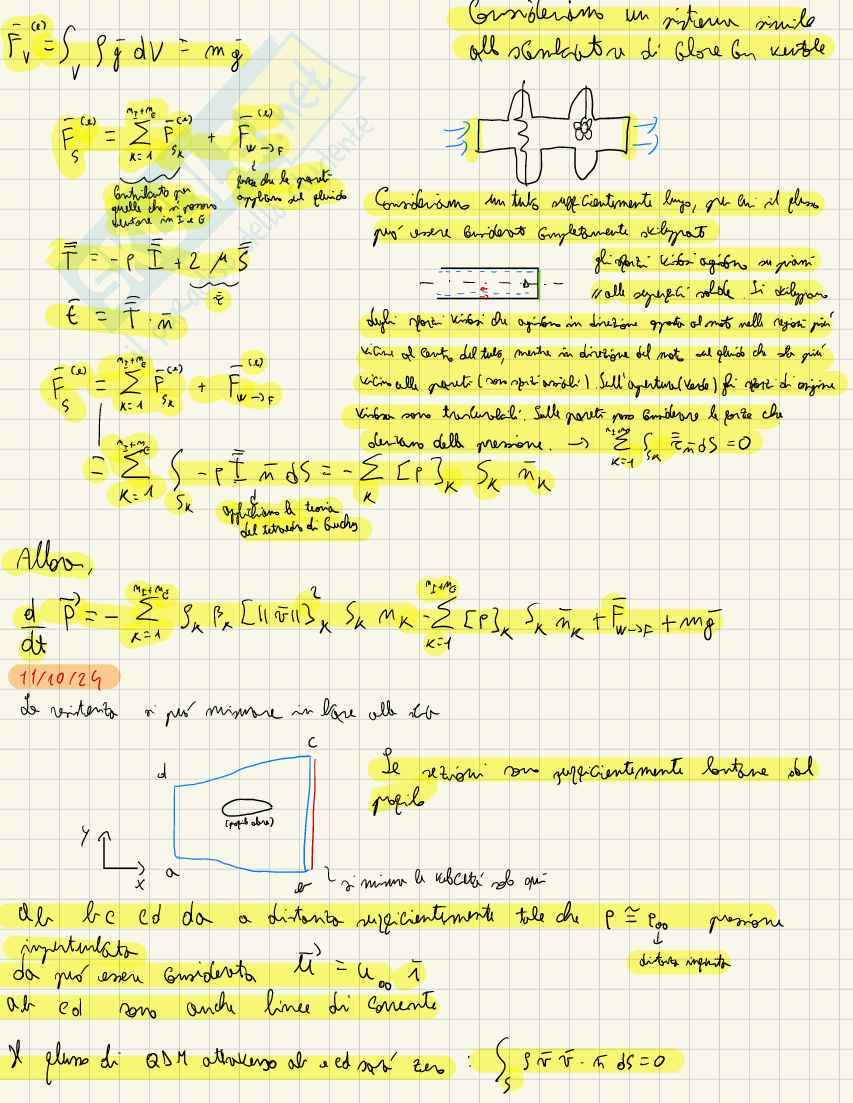 F̄_V^(e) = ∫_V ρ ḡ dV = m ḡ
Consideriamo un sistema simile
allo scambiatore di calore con ventole
F̄_S^(e) = Σ_{K=1}^{n_I+n_E} F̄_{S_K}^(e) + F̄_{W→F}^(e)
Contributo per
quelle che si possono
in I e E
forze che le pareti
applicano sul fluido
Consideriamo un tubo sufficientemente lungo, per cui il flusso
può essere considerato completamente sviluppato
T̿ = -p I̿ + 2 μ S̿
τ̿
t̄ = T̿ · n̄
gli sforzi viscosi agiscono su piani
// alle superfici solide. Si sviluppano
degli sforzi viscosi che agiscono in direzione opposta al moto nelle regioni più
vicine al centro del tubo, mentre in direzione del moto sul fluido che sta più
vicino alle pareti (sono sforzi assiali). Sull'apertura (verde) gli sforzi di origine
viscosa sono trascurabili. Sulle pareti posso considerare le forze che
derivano dalla pressione. → Σ_{K=1}^{n_I+n_E} ∫_{S_K} τ̿ n̄ dS = 0
F̄_S^(e) = Σ_{K=1}^{n_I+n_E} F̄_{S_K}^(e) + F̄_{W→F}^(e)
= Σ_{K=1}^{n_I+n_E} ∫_{S_K} -p I̿ n̄ dS = - Σ_K [p]_K S_K n̄_K
applichiamo la teoria
del tetraedro di Cauchy
Allora,
d/dt P̄ = - Σ_{K=1}^{n_I+n_E} ρ_K β_K [||v̄||]²_K S_K n_K - Σ_{K=1}^{n_I+n_E} [p]_K S_K n̄_K + F̄_{W→F} + m ḡ
11/10/24
La resistenza si può misurare in base alla scia
d
c
(profilo alare)
y
x
a
b
si misura la velocità solo qui
Le sezioni sono sufficientemente lontane dal
profilo
ab bc cd da a distanza sufficientemente tale che p ≅ p∞ pressione
imperturbata
distanza
da può essere considerata ū = u∞ ī
ab cd sono anche linee di corrente
Il flusso di QDM attraverso ab e cd sarà zero : ∫_S ρ v̄ v̄ · n̄ dS = 0